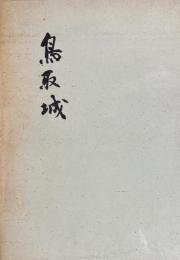 鳥取城